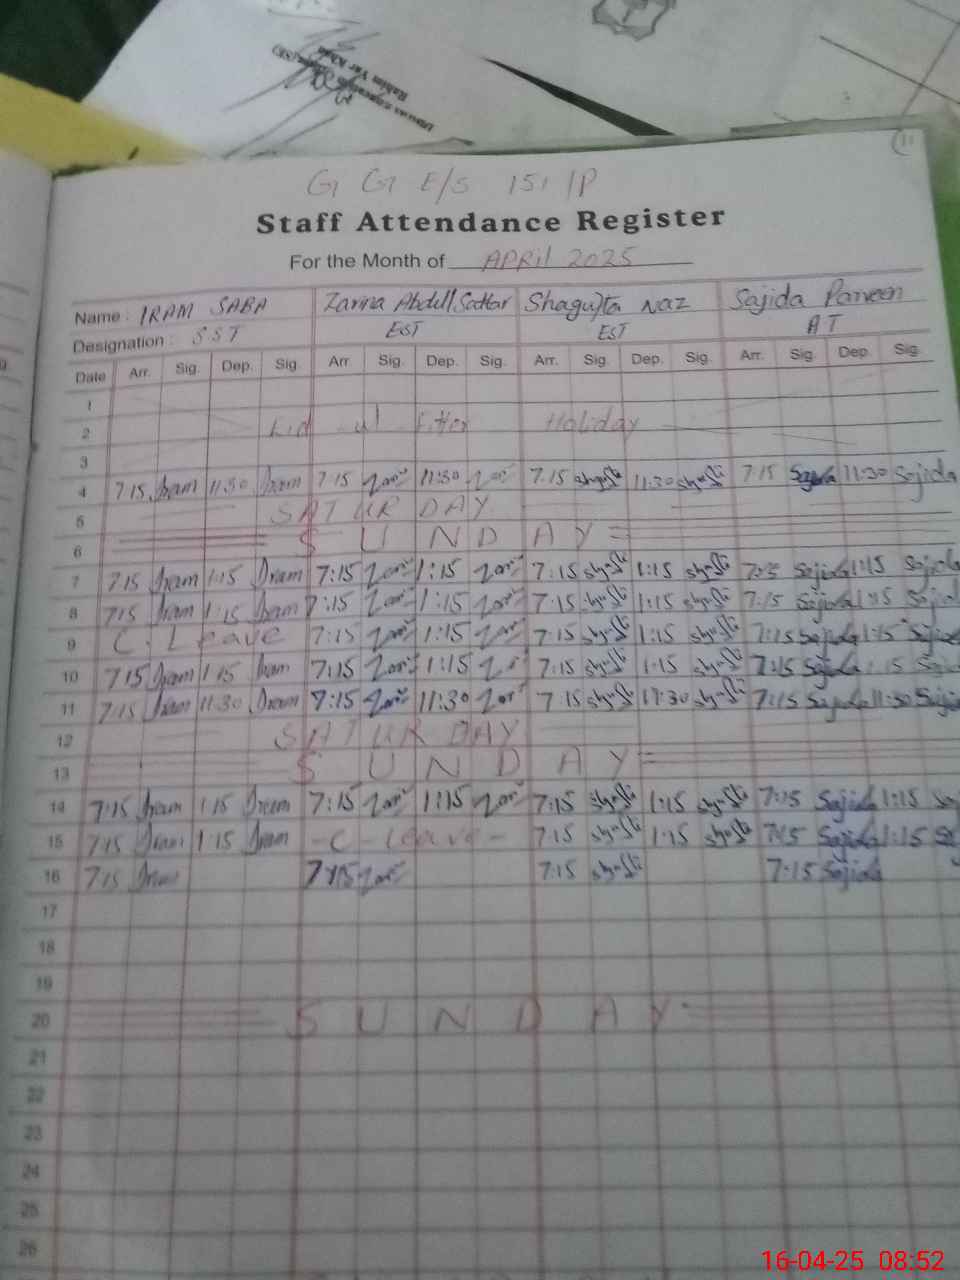 Rahim Yar Khan
11
G G E/S 151/P
Staff Attendance Register
For the Month of APRil 2025
Name : IRAM SABA Zarina Abdul Sattar Shagufta Naz Sajida Parveen
Designation : SST EST EST AT
Date Arr. Sig. Dep. Sig. Arr. Sig. Dep. Sig. Arr. Sig. Dep. Sig. Arr. Sig. Dep. Sig.
1
2 Eid ul Fitter Holiday
3
4 7:15 Iram 11:30 Iram 7:15 11:30 7:15 11:30 7:15 Sajida 11:30 Sajida
5 SATURDAY
6 SUNDAY
7 7:15 Iram 1:15 Iram 7:15 1:15 7:15 1:15 7:15 Sajida 1:15 Sajida
8 7:15 Iram 1:15 Iram 7:15 1:15 7:15 1:15 7:15 Sajida 1:15 Sajid
9 C. Leave 7:15 1:15 7:15 1:15 7:15 Sajida 1:15 Sajid
10 7:15 Iram 1:15 Iram 7:15 1:15 7:15 1:15 7:15 Sajida 1:15 Saji
11 7:15 Iram 11:30 Iram 7:15 11:30 7:15 11:30 7:15 Sajida 11:30 Sajid
12 SATURDAY
13 SUNDAY
14 7:15 Iram 1:15 Iram 7:15 1:15 7:15 1:15 7:15 Sajida 1:15 Sa
15 7:15 Iram 1:15 Iram -C-leave- 7:15 1:15 7:15 Sajida 1:15 Sa
16 7:15 Iram 7:15 7:15 7:15 Sajida
17
18
19
20 SUNDAY
21
22
23
24
25
26
16-04-25 08:52